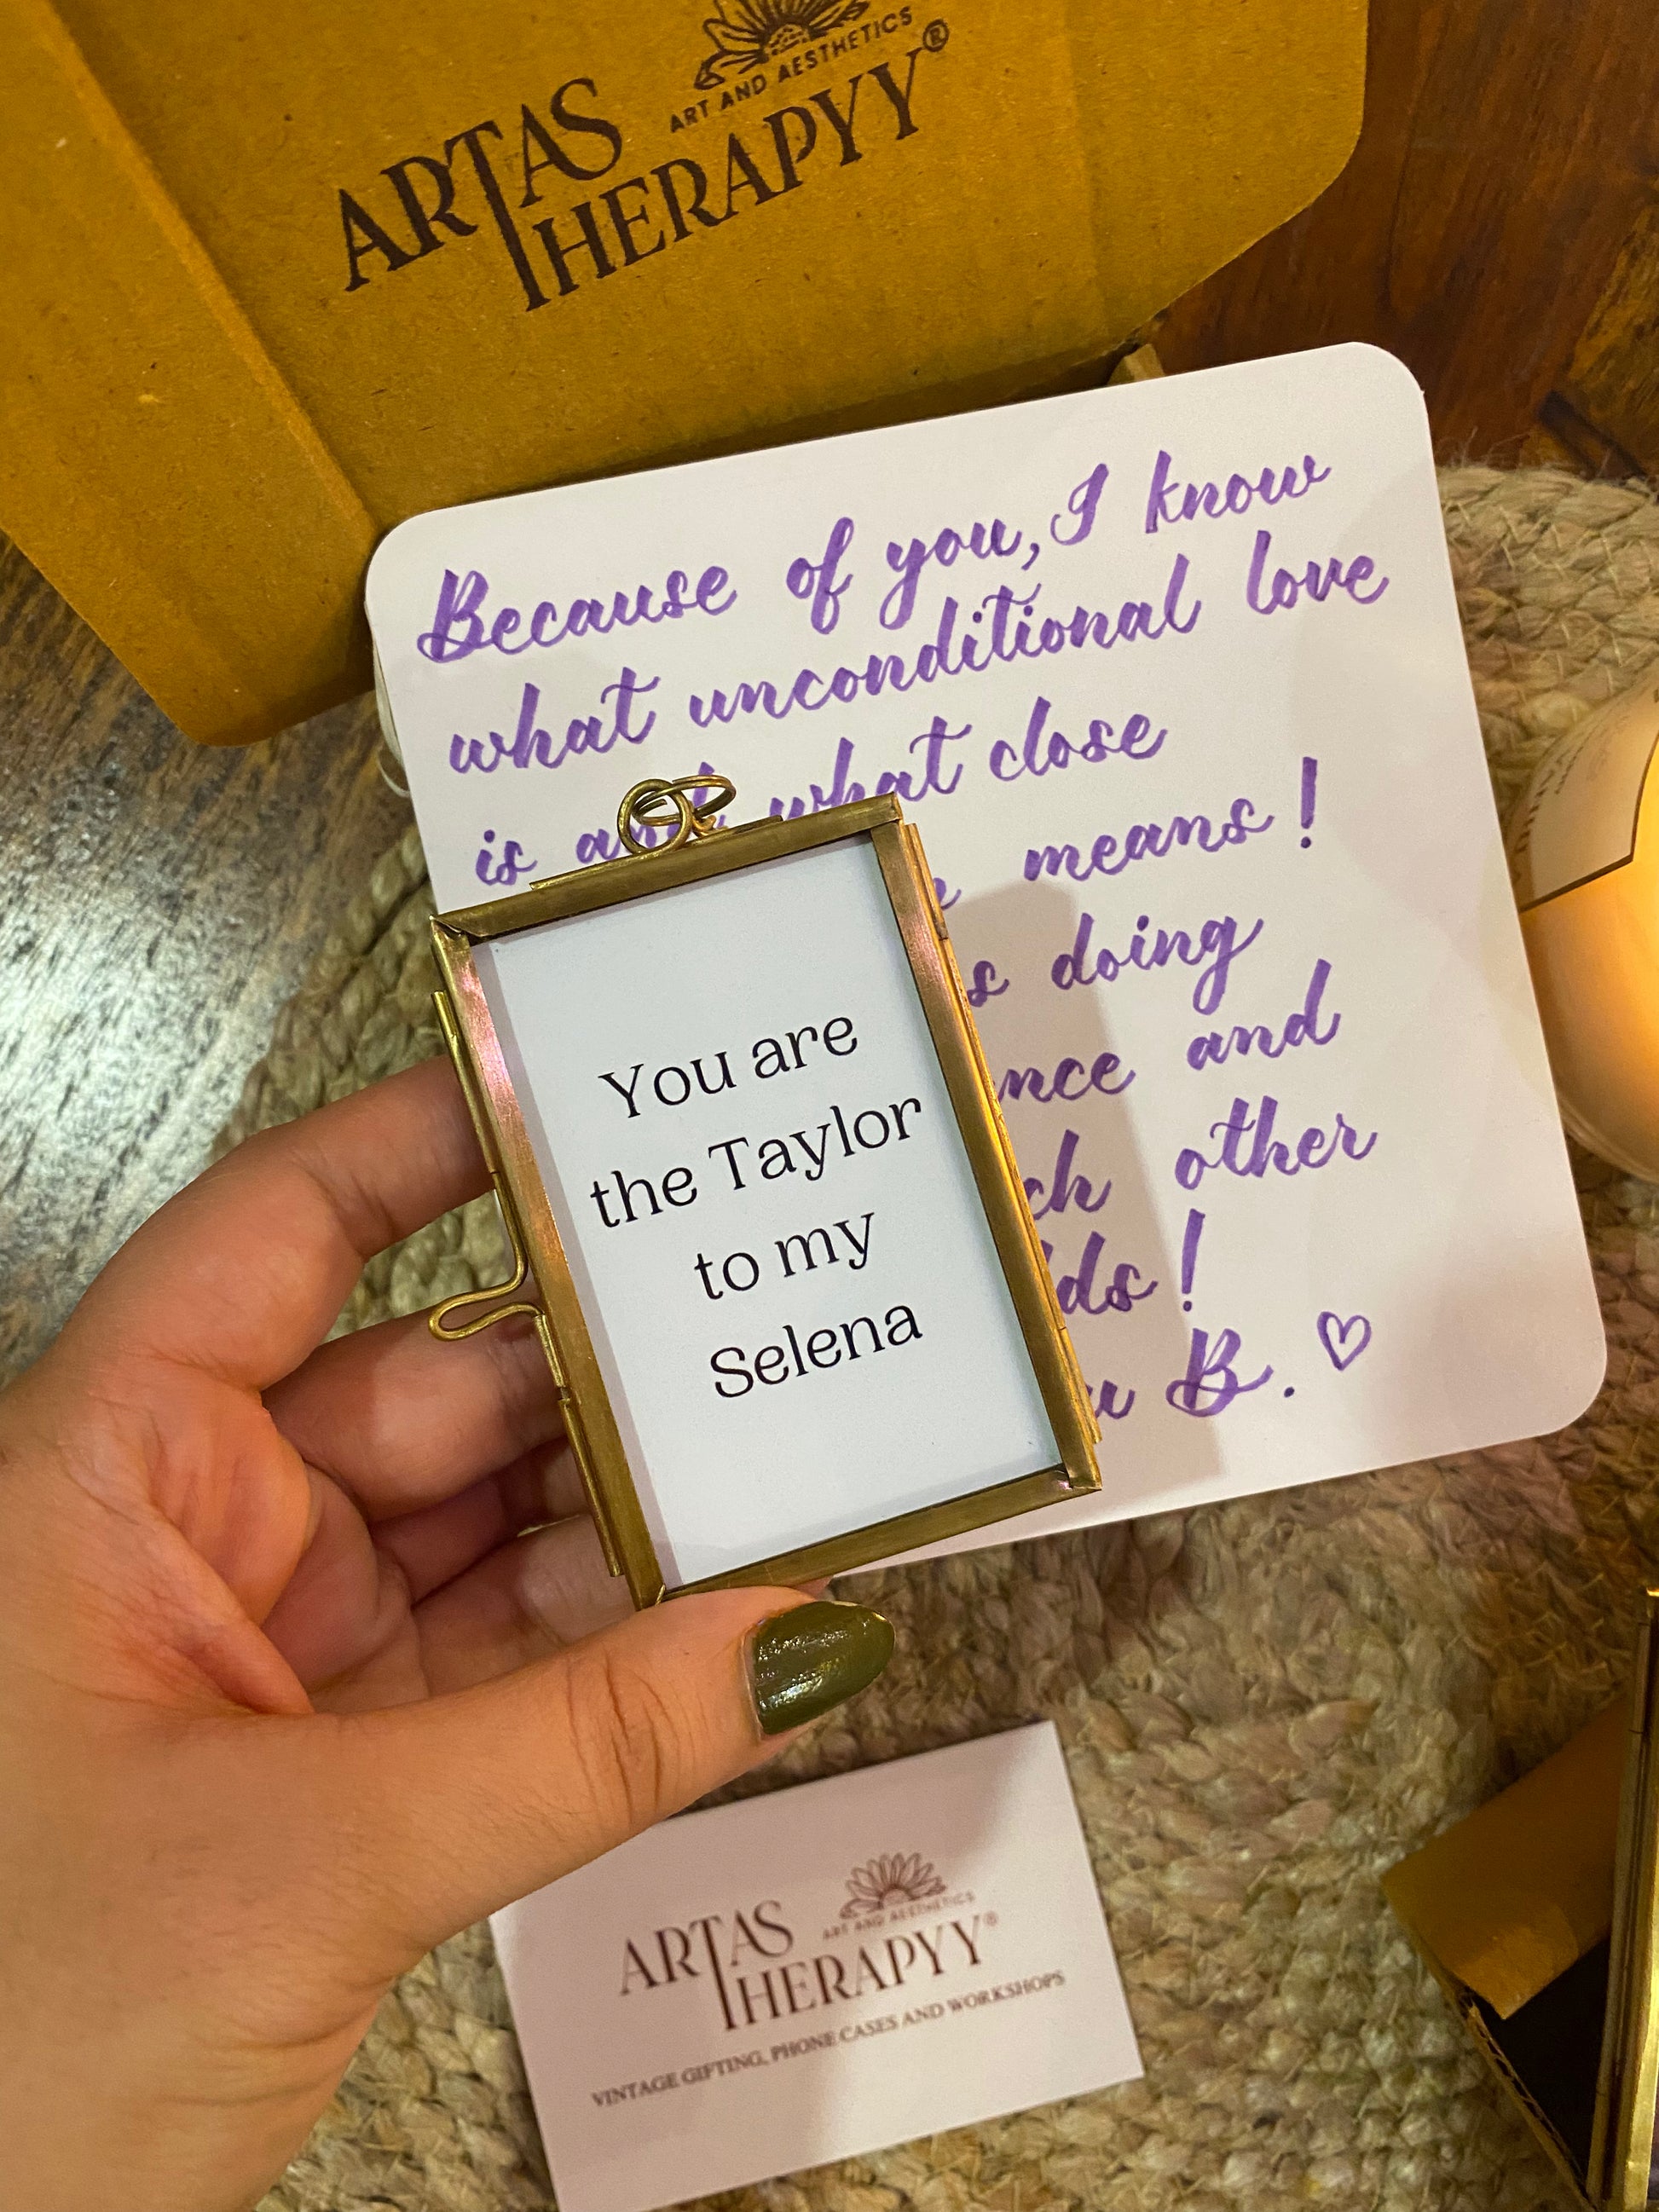 ART AND AESTHETICS
ARTAS
THERAPYY®
Because of you, I know
what unconditional love
is and what close
means!
doing
and
other
B. ♡
You are
the Taylor
to my
Selena
ARTAS
ART AND AESTHETICS
THERAPYY®
VINTAGE GIFTING, PHONE CASES AND WORKSHOPS